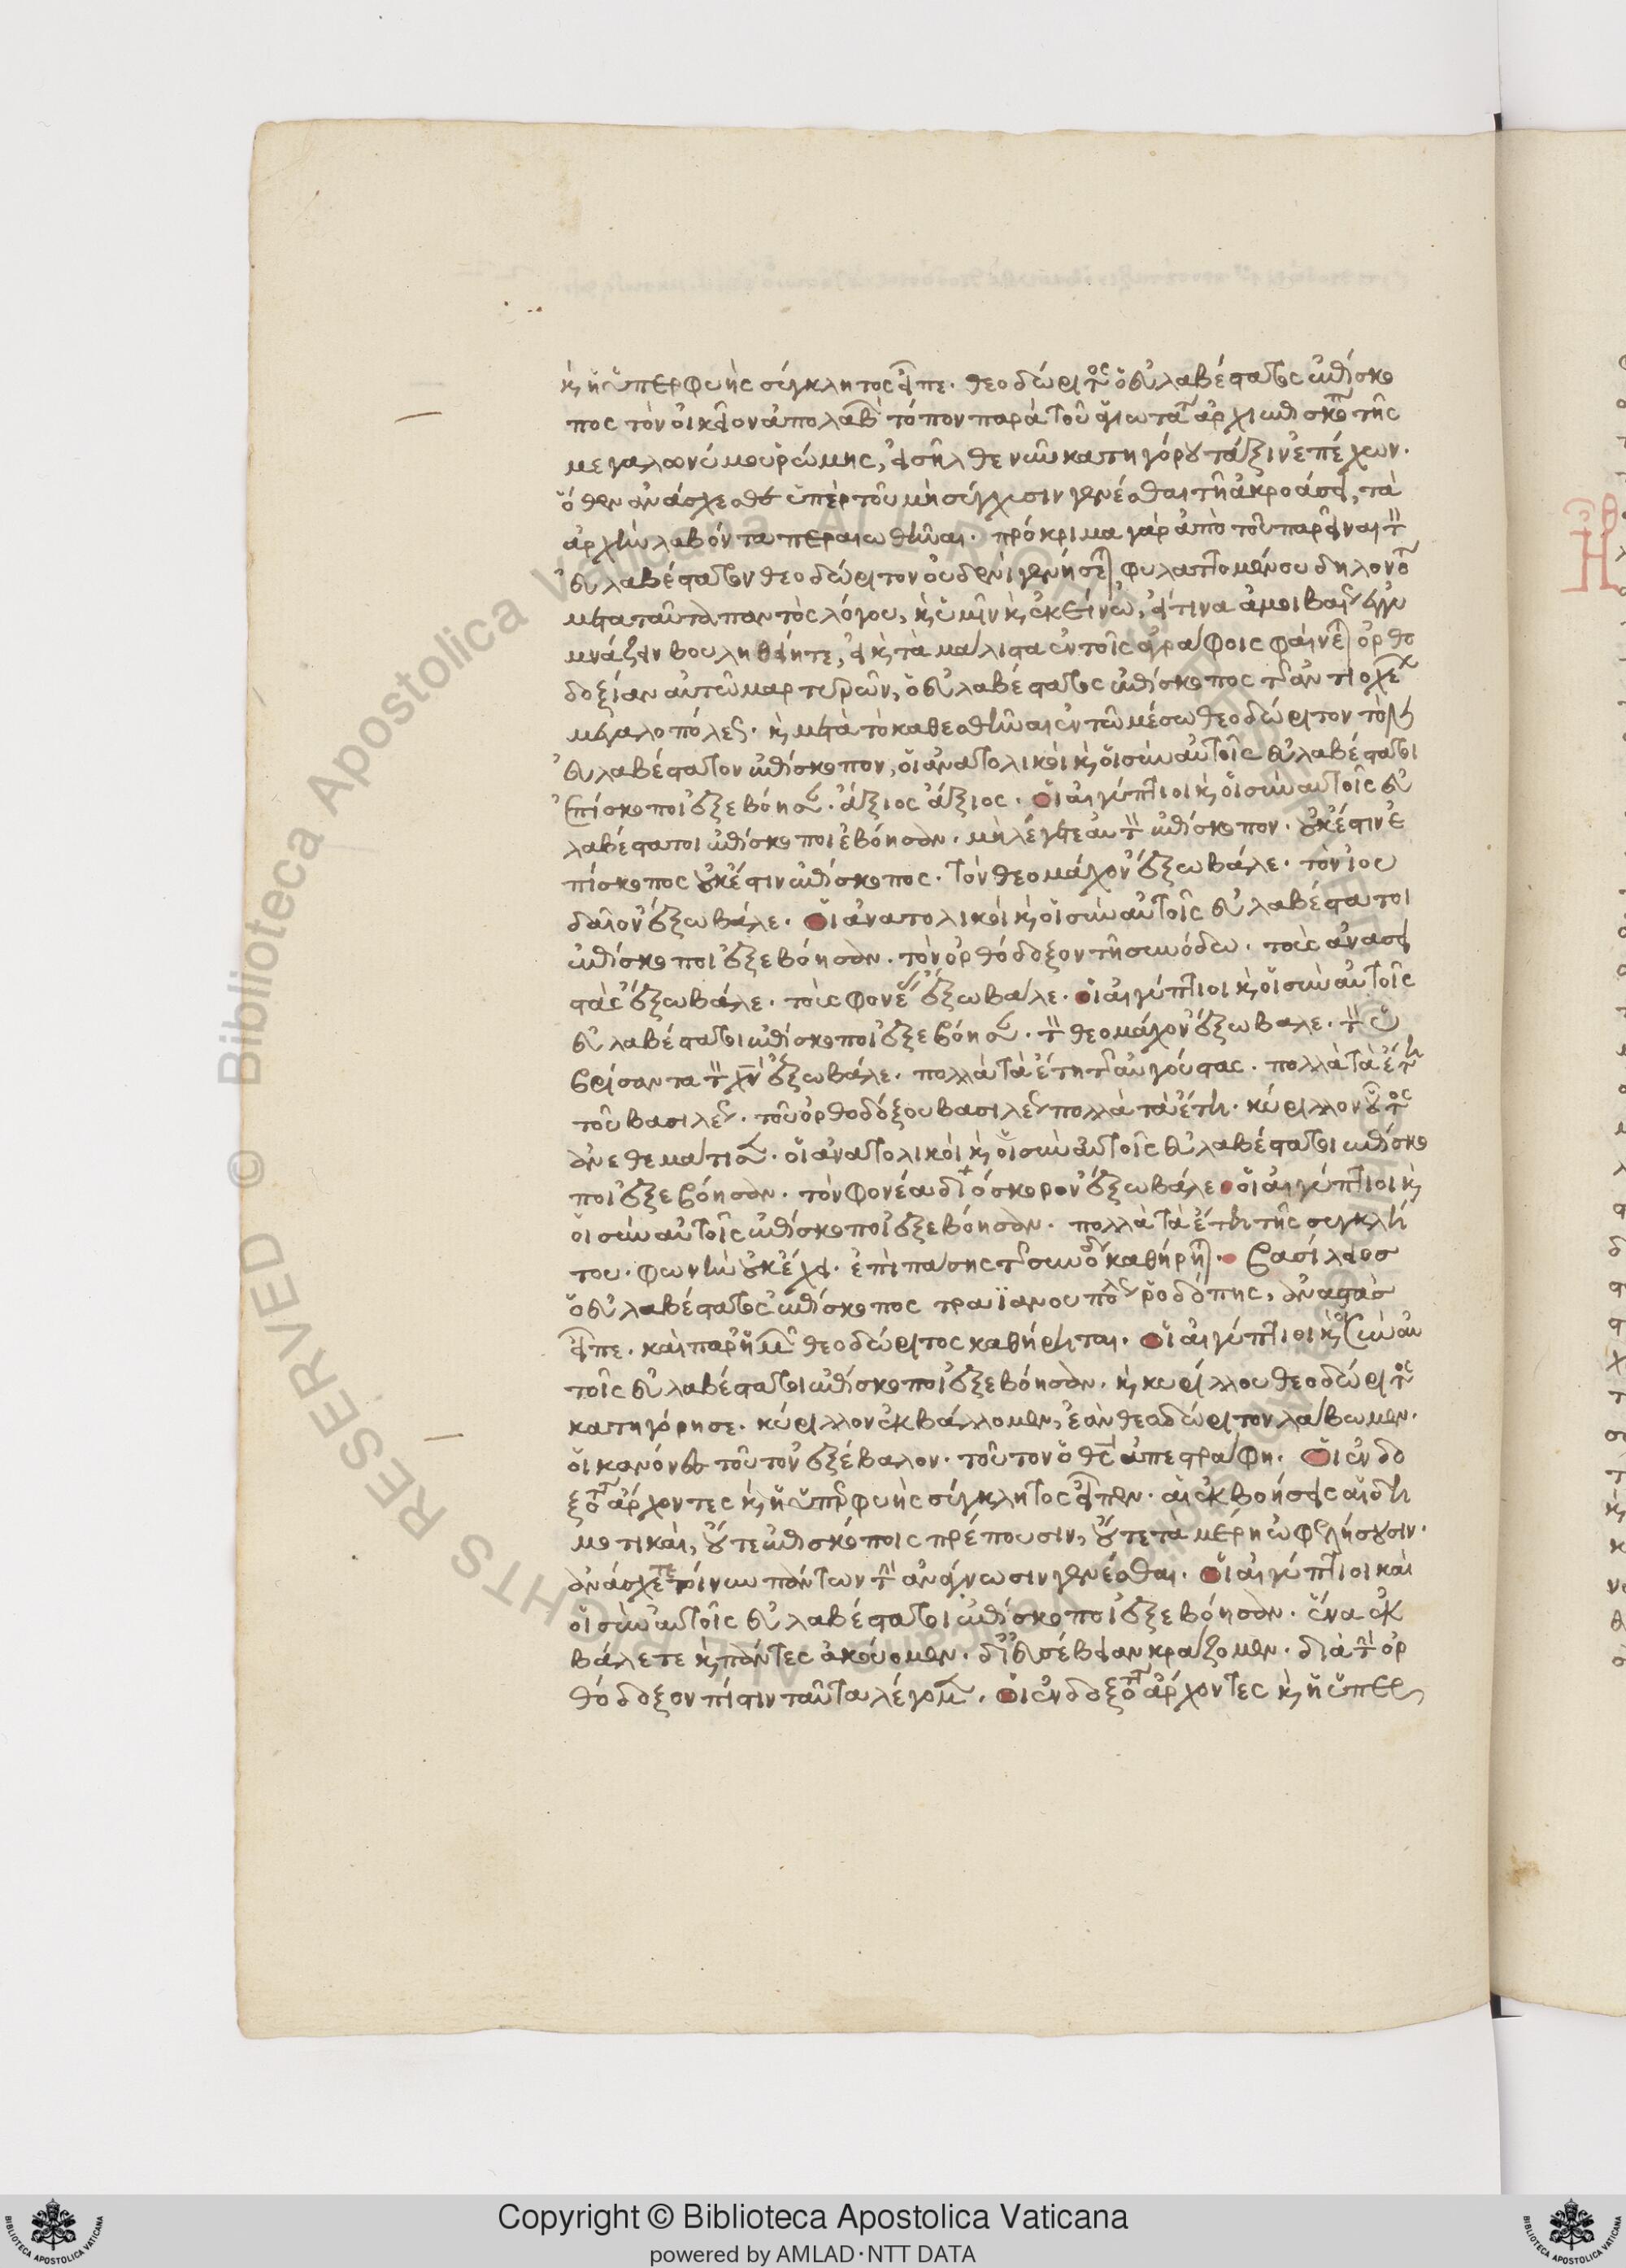 κ ἡ ὑπερφυὴς σύγκλητος εἶπε. θεοδώριτος ὁ εὐλαβέστατος ἐπίσκο
πος τὸν οἰκεῖον ἀπολαβὼν τόπον παρὰ τοῦ ἁγιωτάτου ἀρχιεπισκόπου τῆς
μεγαλωνύμου ῥώμης, εἰσῆλθε νῦν κατηγόρου τάξιν ἐπέχων.
ὅθεν ἀνάσχεσθε ὑπὲρ τοῦ μὴ σύγχυσιν γενέσθαι τῇ ἀκροάσει, τὰ
ἀρχὴν λαβόντα περαιωθῆναι. πρόκριμα γὰρ ἀπὸ τοῦ παρεῖναι τὸν
εὐλαβέστατον θεοδώριτον οὐδενὶ γενήσεται φυλαττομένου δηλονότι
μετὰ ταῦτα παντὸς λόγου, κ ὑμῖν κ ἐκείνω, εἴ τινα ἀμοιβαδὸν γυ
μνάζειν βουληθείητε, εἰ κ τὰ μάλιστα ἐν τοῖς ἀγράφοις φαίνεται ὀρθο
δοξίαν αὐτῶ μαρτυρῶν, ὁ εὐλαβέστατος ἐπίσκοπος τῆς ἀντιοχέων
μεγαλοπόλεως. κ μετὰ τὸ καθεσθῆναι ἐν τῶ μέσω θεοδώριτον τὸν
εὐλαβέστατον ἐπίσκοπον, οἱ ἀνατολικοὶ κ οἱ σὺν αὐτοῖς εὐλαβέστατοι
ἐπίσκοποι ἐξεβόησαν. ἄξιος ἄξιος. οἱ αἰγύπτιοι κ οἱ σὺν αὐτοῖς εὐ
λαβέστατοι ἐπίσκοποι ἐβόησαν. μὴ λέγετε αὐτὸν ἐπίσκοπον. οὐκ ἔστιν ἐ
πίσκοπος οὐκ ἔστιν ἐπίσκοπος. τὸν θεομάχον ἔξω βάλε. τὸν ἰου
δαῖον ἔξω βάλε. οἱ ἀνατολικοὶ κ οἱ σὺν αὐτοῖς εὐλαβέστατοι
ἐπίσκοποι ἐξεβόησαν. τὸν ὀρθόδοξον τῇ συνόδω. τοὺς ἀνασ
τὰς ἔξω βάλε. τοὺς φονεῖς ἔξω βάλε. οἱ αἰγύπτιοι κ οἱ σὺν αὐτοῖς
εὐλαβέστατοι ἐπίσκοποι ἐξεβόησαν. τὸν θεομάχον ἔξω βάλε. τὸν ὑ
βρίσαντα τὸν χν ἔξω βάλε. πολλὰ τὰ ἔτη τῆς αὐγούστας. πολλὰ τὰ ἔτη
τοῦ βασιλέως. τοῦ ὀρθοδόξου βασιλέως πολλὰ τὰ ἔτη. κύριλλον οὗτος
ἀνεθεμάτισεν. οἱ ἀνατολικοὶ κ οἱ σὺν αὐτοῖς εὐλαβέστατοι ἐπίσκο
ποι ἐξεβόησαν. τὸν φονέα διόσκορον ἔξω βάλε. οἱ αἰγύπτιοι κ
οἱ σὺν αὐτοῖς ἐπίσκοποι ἐξεβόησαν. πολλὰ τὰ ἔτη τῆς συγκλή
του. φωνὴν οὐκ ἔχει. ἐπὶ πάσης τῆς συνόδου καθήρηται. βασίλειος
ὁ εὐλαβέστατος ἐπίσκοπος τραϊανουπόλεως ῥοδόπης, ἀναστὰς
εἶπε. καὶ παρ' ἡμῶν θεοδώριτος καθήρηται. οἱ αἰγύπτιοι κ οἱ σὺν αὐ
τοῖς εὐλαβέστατοι ἐπίσκοποι ἐξεβόησαν. κ κυρίλλου θεοδώριτος
κατηγόρησε. κύριλλον ἐκβάλλομεν, ἐὰν θεοδώριτον λάβωμεν.
οἱ κανόνες τοῦτον ἐξέβαλον. τοῦτον ὁ θς ἀπεστράφη. οἱ ἐνδο
ξότατοι ἄρχοντες κ ἡ ὑπερφυὴς σύγκλητος εἶπεν. αἱ ἐκβοήσεις αἱ δη
μοτικαὶ, οὔτε ἐπισκόποις πρέπουσιν, οὔτε τὰ μέρη ὠφελήσουσιν.
ἀνάσχετε τοίνυν πάντων τὴν ἀνάγνωσιν γενέσθαι. οἱ αἰγύπτιοι καὶ
οἱ σὺν αὐτοῖς εὐλαβέστατοι ἐπίσκοποι ἐξεβόησαν. ἕνα ἐκ
βάλετε κ πάντες ἀκούομεν. δι' εὐσέβειαν κράζομεν. διὰ τὴν ὀρ
θόδοξον πίστιν ταῦτα λέγομεν. οἱ ἐνδοξότατοι ἄρχοντες κ ἡ ὑπερ
© Biblioteca Apostolica Vaticana
Copyright © Biblioteca Apostolica Vaticana
powered by AMLAD·NTT DATA